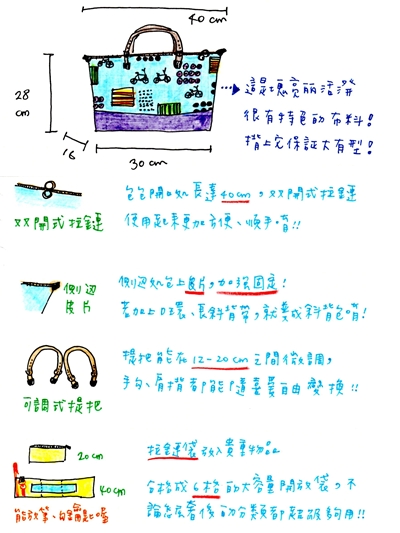 40 cm
28 cm
16
30 cm
這是塊亮麗活潑
很有特色的布料!
揹上它保証大有型!
双開式拉鏈
包包開口處長達40cm,双開式拉鏈
使用起來更加方便、順手唷!!
側邊皮片
側邊處包上皮片,加強固定!
若加上D環、長斜背帶,就變成斜背包唷!
可調式提把
提把能在12-20cm之間微調,
手勾、肩揹都能隨意自由變換!!
20cm
拉鏈袋放入貴重物品
40cm
能放筆、勾鑰匙喔
分格成6格的大容量開放袋,不
論怎麼看後的分類都超級夠用!!